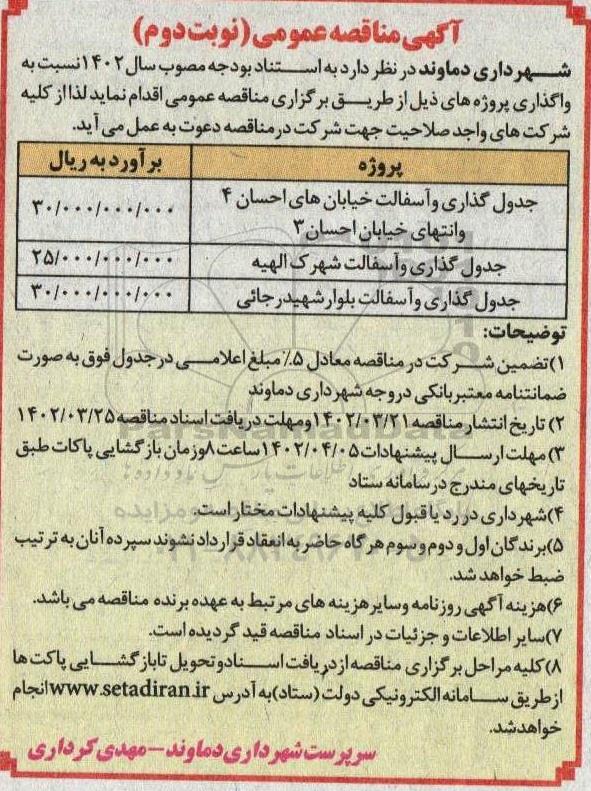 آگهی مناقصه عمومی (نوبت دوم)
شهرداری دماوند در نظر دارد به استناد بودجه مصوب سال ۱۴۰۲ نسبت به
واگذاری پروژه های ذیل از طریق برگزاری مناقصه عمومی اقدام نماید لذا از کلیه
شرکت های واجد صلاحیت جهت شرکت در مناقصه دعوت به عمل می آید.
پروژه برآورد به ریال
جدول گذاری و آسفالت خیابان های احسان ۴
وانتهای خیابان احسان ۳ ۳۰/۰۰۰/۰۰۰/۰۰۰
جدول گذاری و آسفالت شهرک الهیه ۲۵/۰۰۰/۰۰۰/۰۰۰
جدول گذاری و آسفالت بلوار شهید رجائی ۳۰/۰۰۰/۰۰۰/۰۰۰
توضیحات:
۱) تضمین شرکت در مناقصه معادل ۵٪ مبلغ اعلامی در جدول فوق به صورت
ضمانتنامه معتبر بانکی در وجه شهرداری دماوند
۲) تاریخ انتشار مناقصه ۱۴۰۲/۰۳/۲۱ ومهلت دریافت اسناد مناقصه ۱۴۰۲/۰۳/۲۵
۳) مهلت ارسال پیشنهادات ۱۴۰۲/۰۴/۰۵ ساعت ۸ وزمان بازگشایی پاکات طبق
تاریخهای مندرج در سامانه ستاد
۴) شهرداری در رد یا قبول کلیه پیشنهادات مختار است.
۵) برندگان اول و دوم و سوم هرگاه حاضر به انعقاد قرارداد نشوند سپرده آنان به ترتیب
ضبط خواهد شد.
۶) هزینه آگهی روزنامه وسایر هزینه های مرتبط به عهده برنده مناقصه می باشد.
۷) سایر اطلاعات و جزئیات در اسناد مناقصه قید گردیده است.
۸) کلیه مراحل برگزاری مناقصه از دریافت اسناد و تحویل تا بازگشایی پاکت ها
از طریق سامانه الکترونیکی دولت (ستاد) به آدرس www.setadiran.ir انجام
خواهدشد.
سرپرست شهرداری دماوند - مهدی کرداری